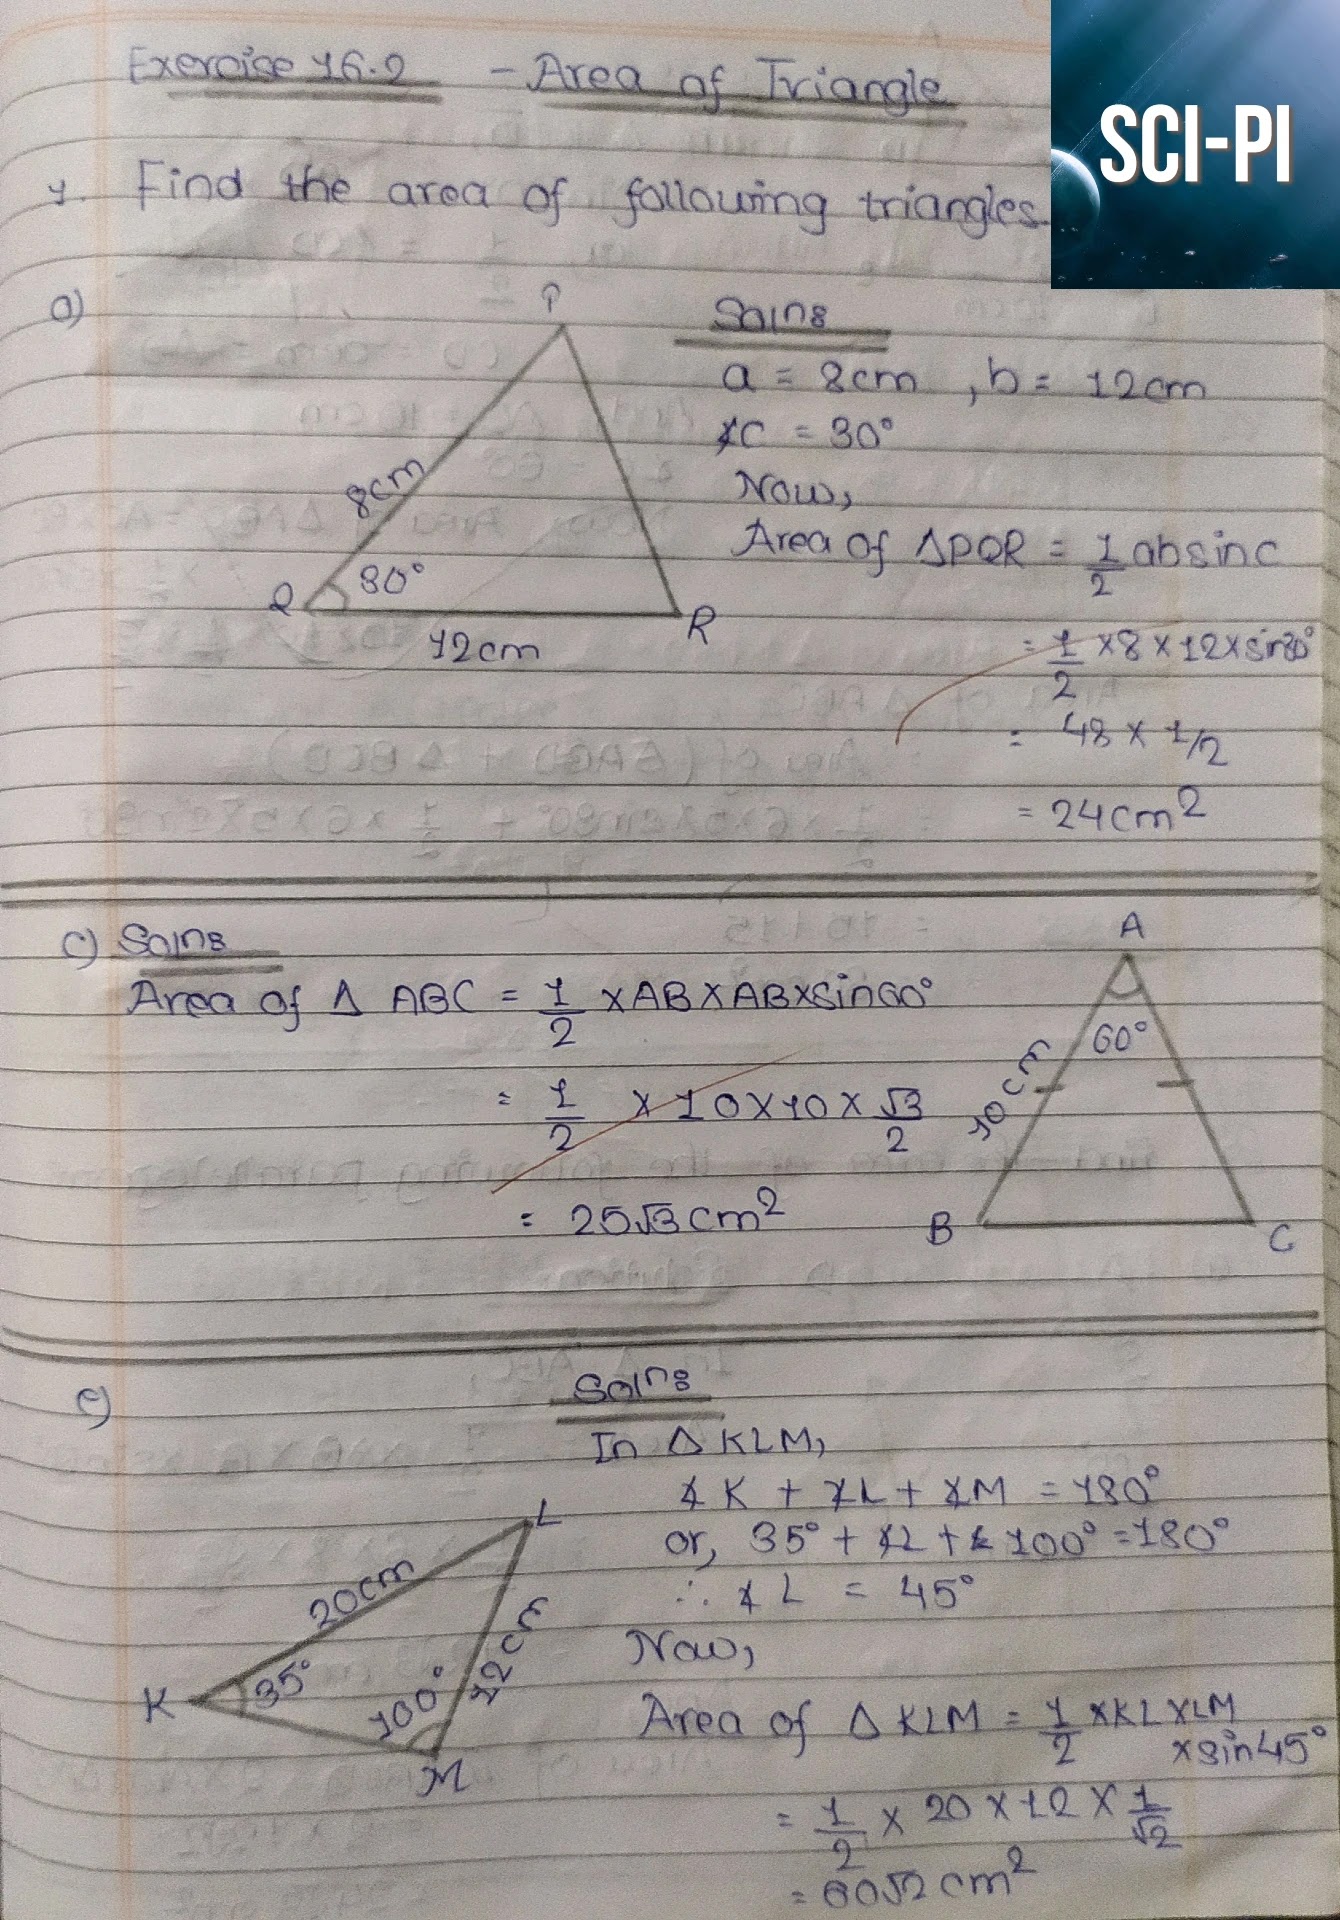 Exercise 16.2 - Area of Triangle
SCI-PI
1. Find the area of following triangles.
a)
P
8cm
Q
30°
12cm
R
Solns
a = 8cm , b = 12cm
∡C = 30°
Now,
Area of ΔPQR = 1/2 absinc
= 1/2 × 8 × 12 × sin30°
= 48 × 1/2
= 24cm²
c) Solns
Area of Δ ABC = 1/2 × AB × AB × sin60°
= 1/2 × 10 × 10 × √3/2
= 25√3 cm²
A
60°
10cm
B
C
e)
Solns
In Δ KLM,
∡K + ∡L + ∡M = 180°
or, 35° + ∡L + 100° = 180°
∴ ∡L = 45°
Now,
Area of Δ KLM = 1/2 × KL × LM
× sin45°
= 1/2 × 20 × 12 × 1/√2
= 60√2 cm²
L
20cm
12cm
K
35°
100°
M